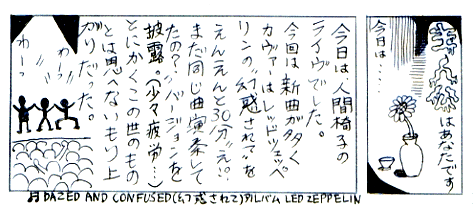 はあなたです
今日は‥‥
今日は人間椅子の
ライヴでした。
今回は新曲が多く
カヴァーはレッドツェペ
リンの"幻惑されて"を
えんえんと30分"え!?
まだ同じ曲演奏して
たの?"バージョンを
披露。(少々疲労…)
とにかくこの世のもの
とは思へないもり上
がりだった。
わーっ
わーっ
♬DAZED AND CONFUSED(幻惑されて)アルバム LED ZEPPELIN